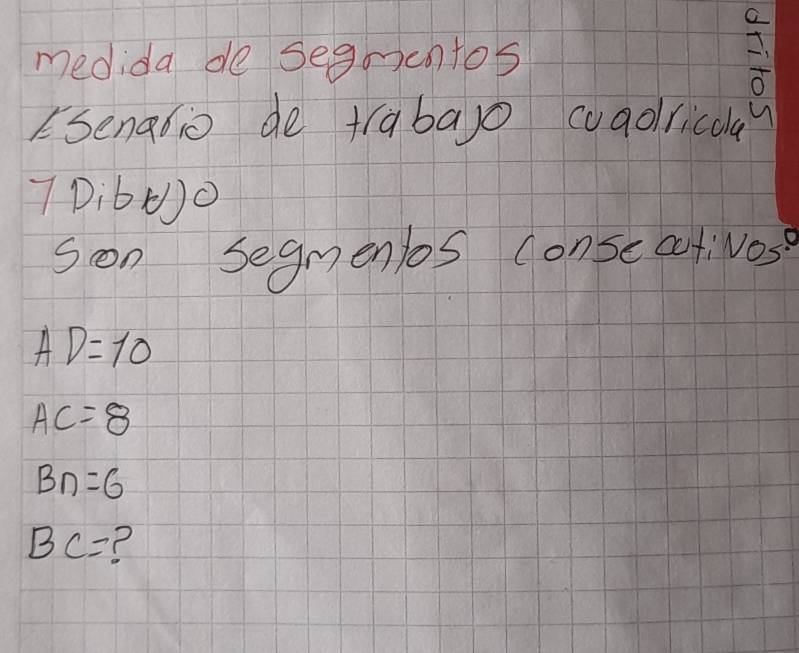 medida de segmentos
Esenario de trabajo cuadricula
1 Dibujo
Son segmentos consecutivos:
AD=10
AC=8
BD=6
BC=?
dritos